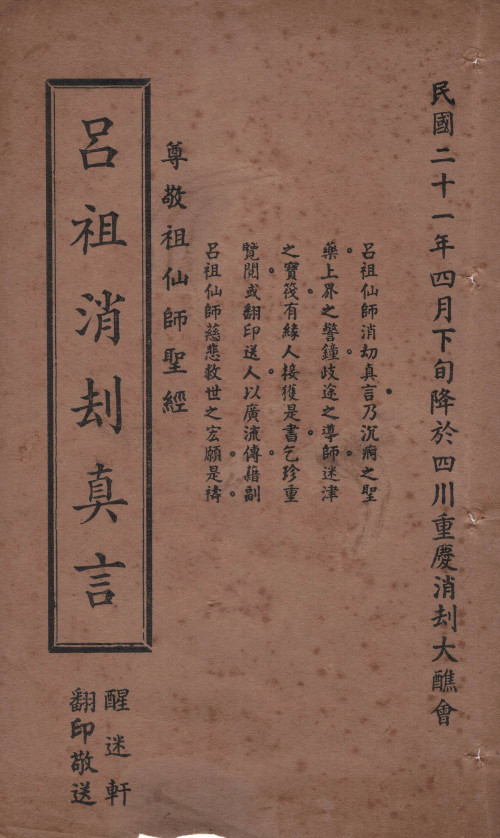 民國二十一年四月下旬降於四川重慶消刦大醮會
呂祖仙師消刦真言乃沉痾之聖
藥上界之警鐘歧途之導師迷津
之寶筏有緣人接獲是書乞珍重
覽閱或翻印送人以廣流傳藉副
呂祖仙師慈悲救世之宏願是禱
尊敬祖仙師聖經
呂祖消刦真言
醒迷軒
翻印敬送